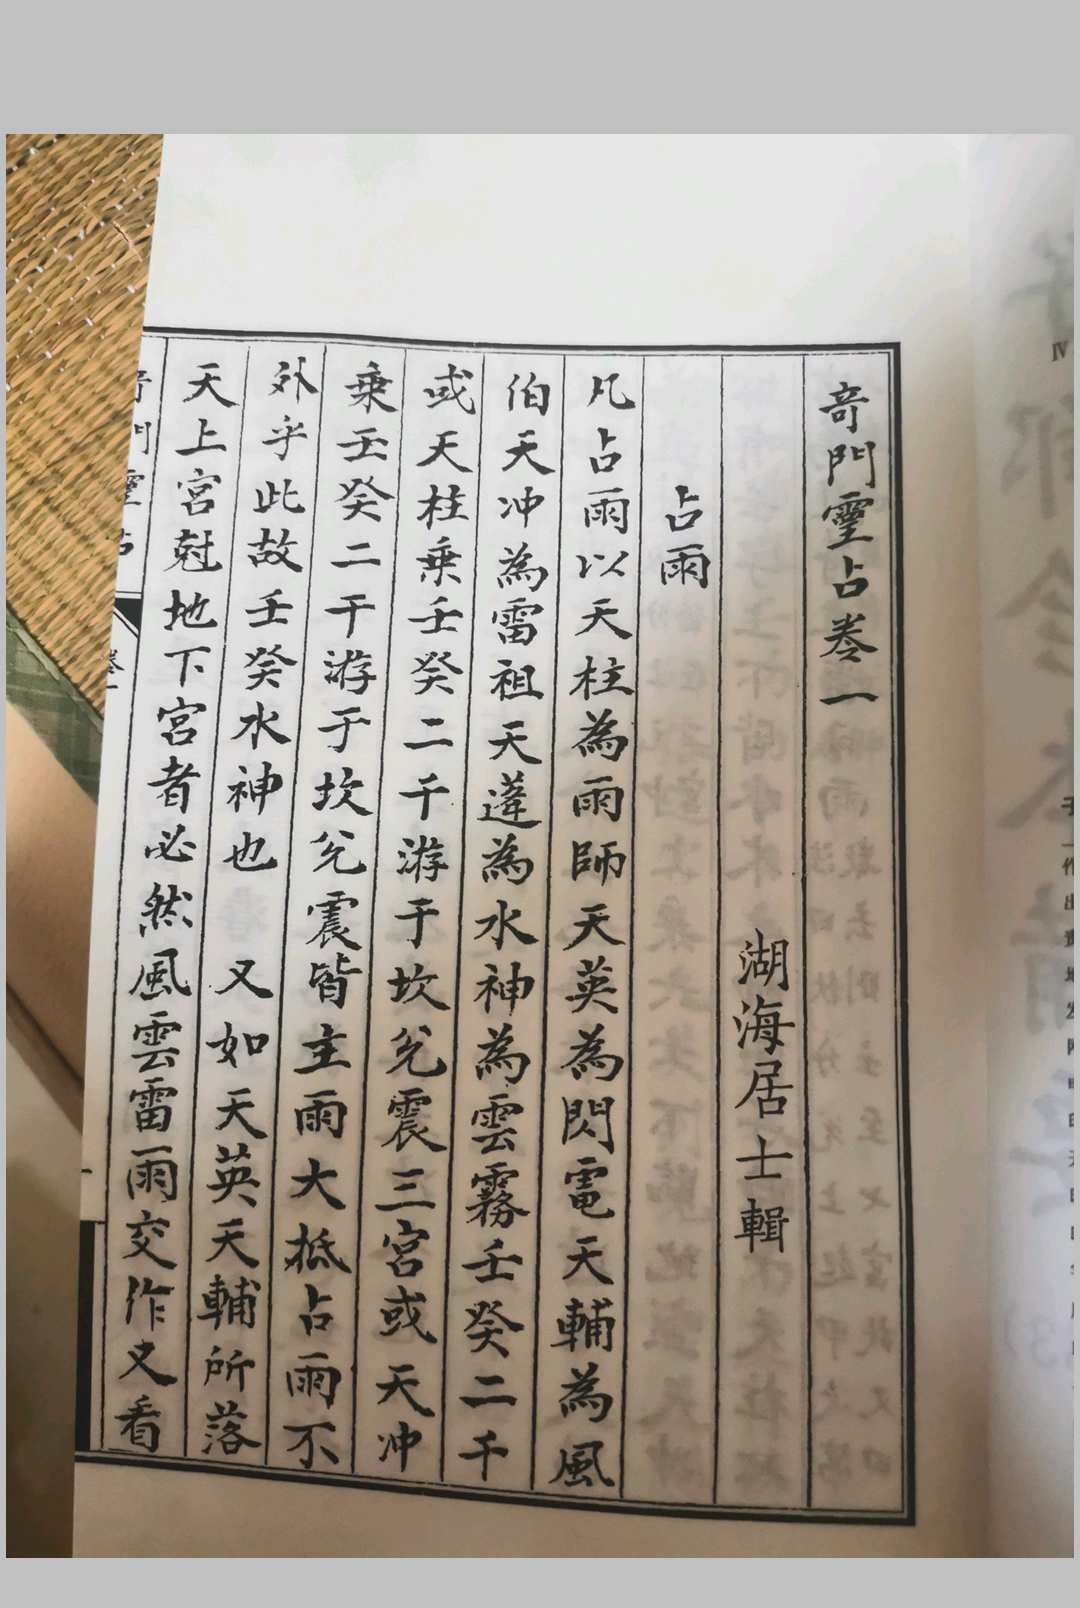 奇門靈占卷一
湖海居士輯
占雨
凡占雨以天柱為雨師天英為閃電天輔為風
伯天冲為雷祖天蓬為水神為雲霧壬癸二干
或天柱乗壬癸二干游于坎兑震三宮或天冲
乗壬癸二干游于坎兑震皆主雨大抵占雨不
外乎此故壬癸水神也 又如天英天輔所落
天上宮尅地下宮者必然風雲雷雨交作又看
奇門靈占
卷一
一